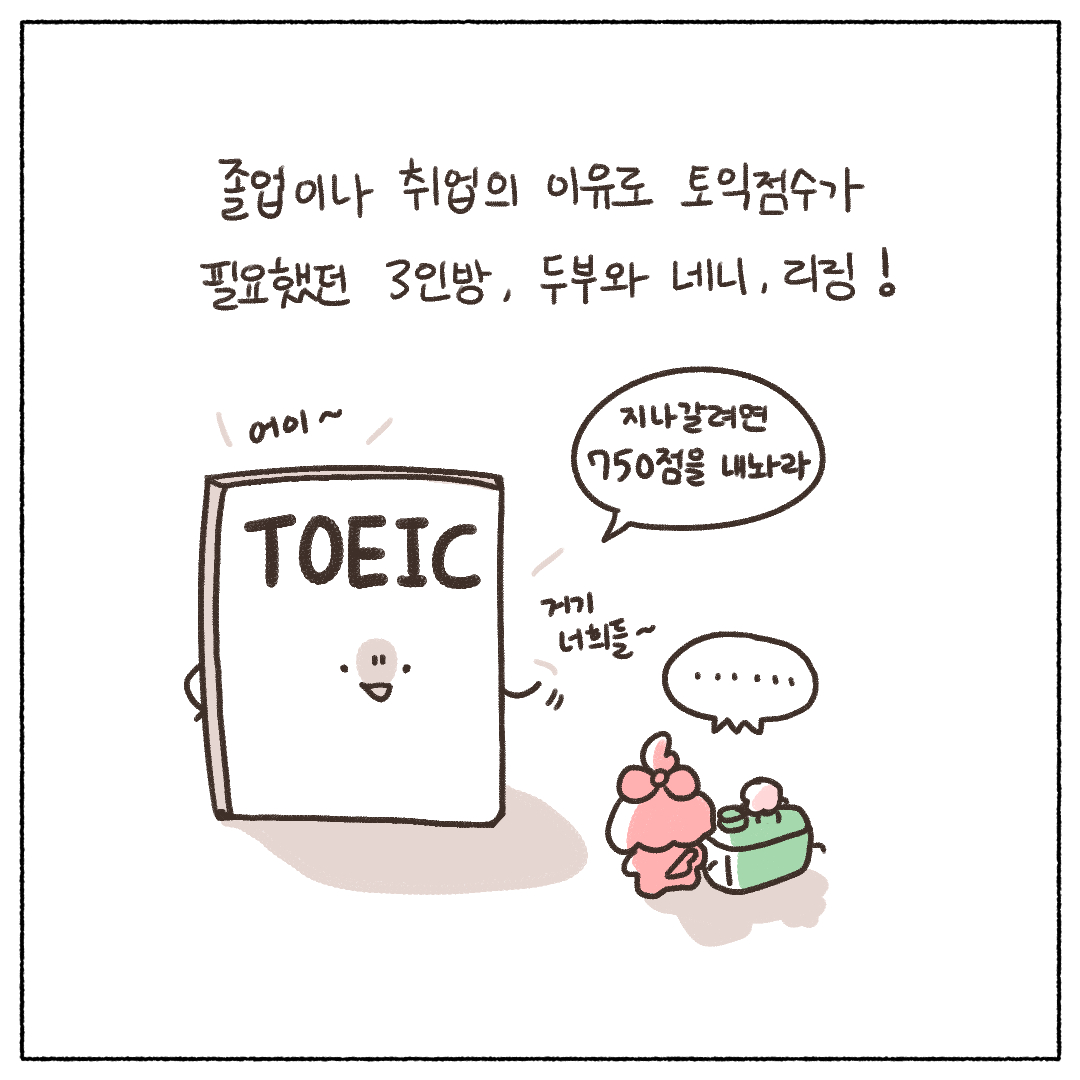 졸업이나 취업의 이유로 토익점수가
필요했던 3인방, 두부와 네니, 리링!
어이~
지나갈려면
750점을 내놔라
TOEIC
거기
너희들~
......